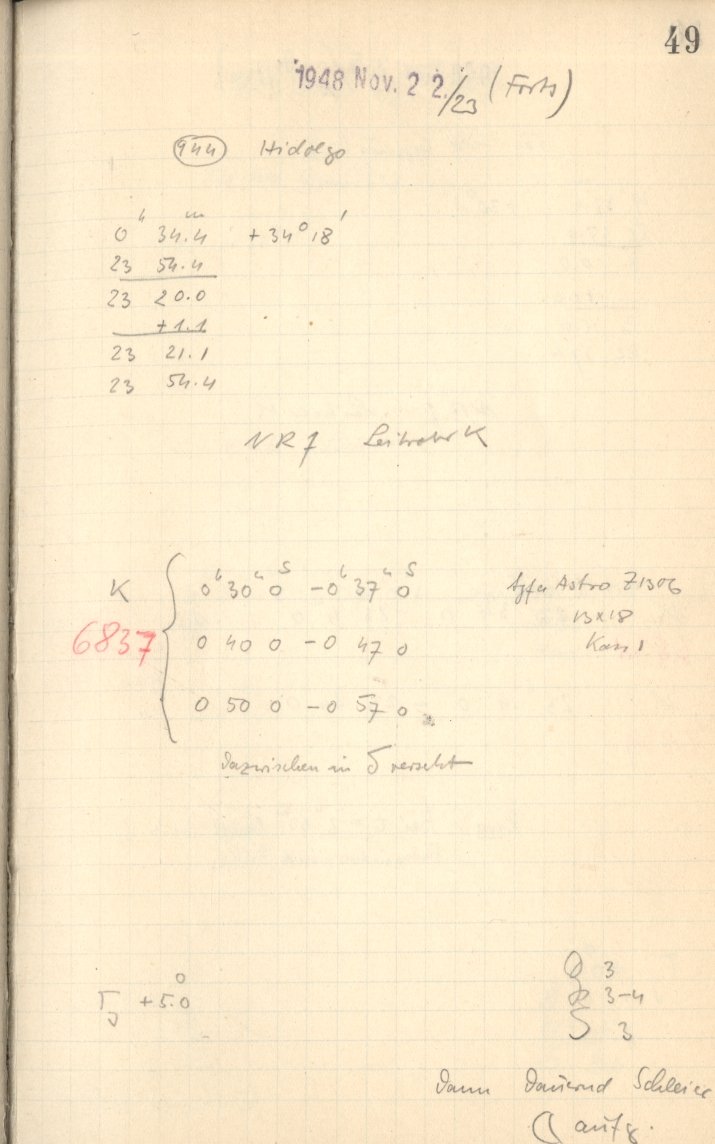 49
1948 Nov. 22./23 (Forts)
944 Hidalgo
0ʰ 34.4ᵐ +34° 18'
23 54.4
23 20.0
+1.1
23 21.1
23 54.4
NR 7 Leitrohr K
K 0ʰ 30ᵐ 0ˢ – 0ʰ 37ᵐ 0ˢ Agfa Astro Z1306
13x18
6837 0 40 0 – 0 47 0 Kass 1
0 50 0 – 0 57 0
dazwischen in δ versetzt
3
+5.0° 3-4
3
Dann dauernd Schleier
aufg.